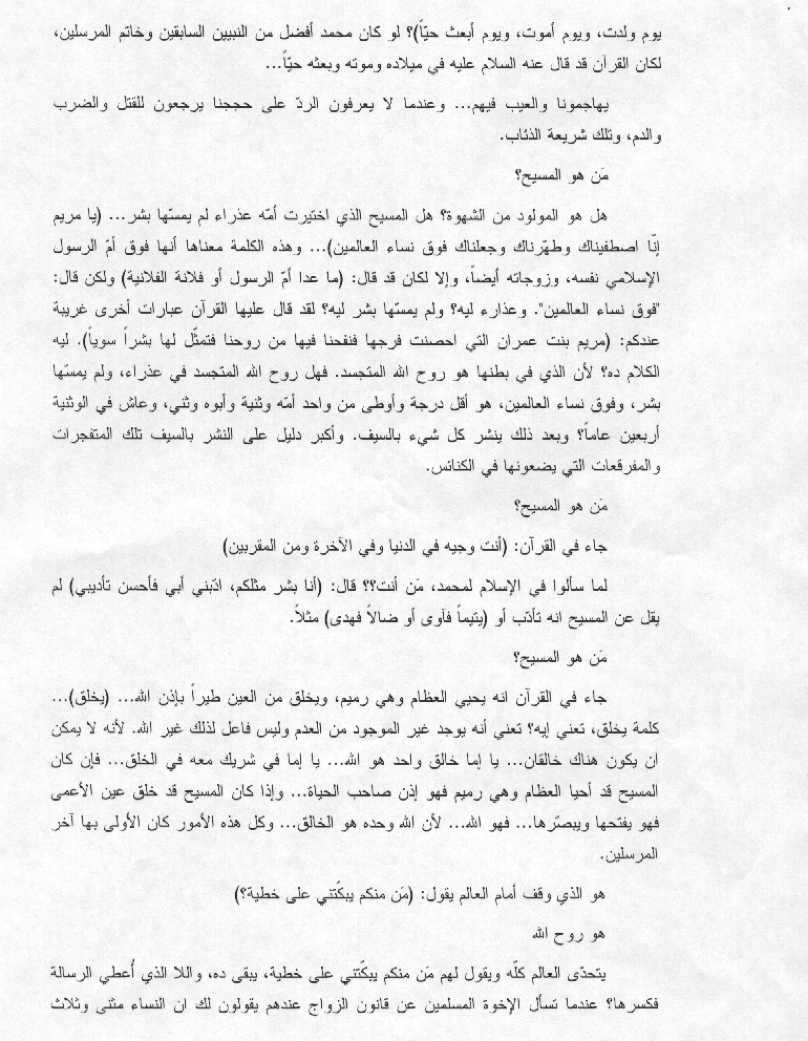 يوم ولدت، ويوم أموت، ويوم أبعث حيّاً)؟ لو كان محمد أفضل من النبيين السابقين وخاتم المرسلين،
لكان القرآن قد قال عنه السلام عليه في ميلاده وموته وبعثه حيّاً...
يهاجمونا والعيب فيهم... وعندما لا يعرفون الردّ على حججنا يرجعون للقتل والضرب
والدم، وتلك شريعة الذئاب.
مَن هو المسيح؟
هل هو المولود من الشهوة؟ هل المسيح الذي اختيرت أمّه عذراء لم يمسّها بشر... (يا مريم
إنّا اصطفيناك وطهّرناك وجعلناك فوق نساء العالمين)... وهذه الكلمة معناها أنها فوق أمّ الرسول
الإسلامي نفسه، وزوجاته أيضاً، وإلا لكان قد قال: (ما عدا أمّ الرسول أو فلانة الفلانية) ولكن قال:
"فوق نساء العالمين". وعذارء ليه؟ ولم يمسّها بشر ليه؟ لقد قال عليها القرآن عبارات أخرى غريبة
عندكم: (مريم بنت عمران التي احصنت فرجها فنفحنا فيها من روحنا فتمثّل لها بشراً سوياً). ليه
الكلام ده؟ لأن الذي في بطنها هو روح الله المتجسد. فهل روح الله المتجسد في عذراء، ولم يمسّها
بشر، وفوق نساء العالمين، هو أقل درجة وأوطى من واحد أمّه وثنية وأبوه وثني، وعاش في الوثنية
أربعين عاماً؟ وبعد ذلك ينشر كل شيء بالسيف. وأكبر دليل على النشر بالسيف تلك المتفجرات
والمفرقعات التي يضعونها في الكنائس.
مَن هو المسيح؟
جاء في القرآن: (أنت وجيه في الدنيا وفي الآخرة ومن المقربين)
لما سألوا في الإسلام لمحمد، مَن أنت؟؟ قال: (أنا بشر مثلكم، ادّبني أبي فأحسن تأديبي) لم
يقل عن المسيح انه تأدّب أو (يتيماً فآوى أو ضالاً فهدى) مثلاً.
مَن هو المسيح؟
جاء في القرآن انه يحيي العظام وهي رميم، ويخلق من العين طيراً بإذن الله... (يخلق)...
كلمة يخلق، تعني إيه؟ تعني أنه يوجد غير الموجود من العدم وليس فاعل لذلك غير الله. لأنه لا يمكن
ان يكون هناك خالقان... يا إما خالق واحد هو الله... يا إما في شريك معه في الخلق... فإن كان
المسيح قد أحيا العظام وهي رميم فهو إذن صاحب الحياة... وإذا كان المسيح قد خلق عين الأعمى
فهو يفتحها ويبصّرها... فهو الله... لأن الله وحده هو الخالق... وكل هذه الأمور كان الأولى بها آخر
المرسلين.
هو الذي وقف أمام العالم يقول: (مَن منكم يبكّتني على خطية؟)
هو روح الله
يتحدّى العالم كلّه ويقول لهم مَن منكم يبكّتني على خطية، يبقى ده، واللا الذي أُعطي الرسالة
فكسرها؟ عندما تسأل الإخوة المسلمين عن قانون الزواج عندهم يقولون لك ان النساء مثنى وثلاث